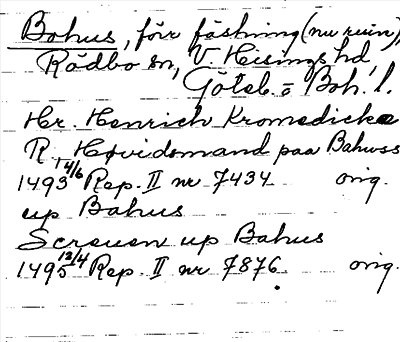 Bohus, förr fästning (nu ruin),
Rödbo sn, V. Hisings hd,
Göteb. o Boh. l.
Hr. Henrich Kromedicke
R. Høvidsmand paa Bahuss
1493 14/6 Rep. II nr 7434 orig.
up Bahus
Screuen up Bahus
1495 12/4 Rep. II nr 7876 orig.